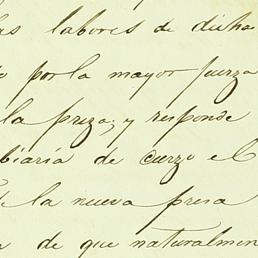 as labores de dicha
por la mayor fuerza
la preza; y responde
biaria de cuerzo el
la nueva presa
de que naturalmen